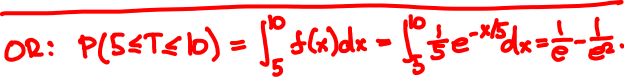 OR: P(5≤T≤10) = ∫₅¹⁰ f(x)dx = ∫₅¹⁰ 1/5 e^(-x/5) dx = 1/e - 1/e².